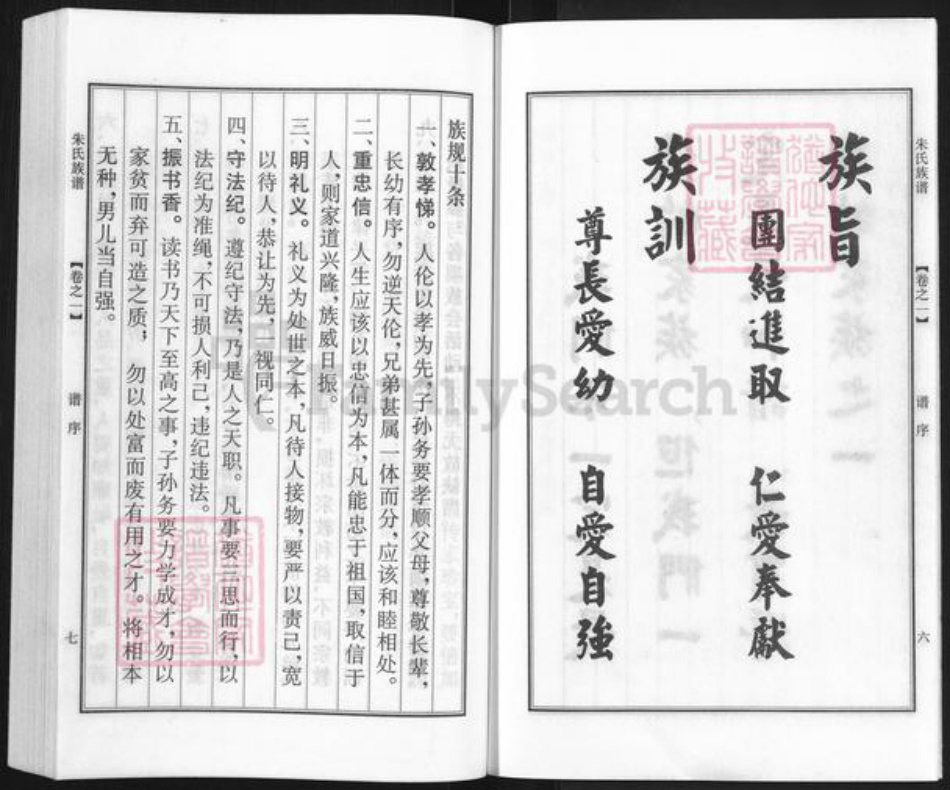 朱氏族谱
【卷之一】
谱序
六
族旨
團結進取 仁愛奉獻
族訓
尊長愛幼 自愛自強
族规十条
一、敦孝悌。人伦以孝为先，子孙务要孝顺父母，尊敬长辈，
长幼有序，勿逆天伦，兄弟甚属一体而分，应该和睦相处。
二、重忠信。人生应该以忠信为本，凡能忠于祖国，取信于
人，则家道兴隆，族威日振。
三、明礼义。礼义为处世之本，凡待人接物，要严以责己，宽
以待人，恭让为先，一视同仁。
四、守法纪。遵纪守法，乃是人之天职。凡事要三思而行，以
法纪为准绳，不可损人利己，违纪违法。
五、振书香。读书乃天下至高之事，子孙务要力学成才，勿以
家贫而弃可造之质； 勿以处富而废有用之才。将相本
无种，男儿当自强。
朱氏族谱
【卷之一】
谱序
七
FamilySearch